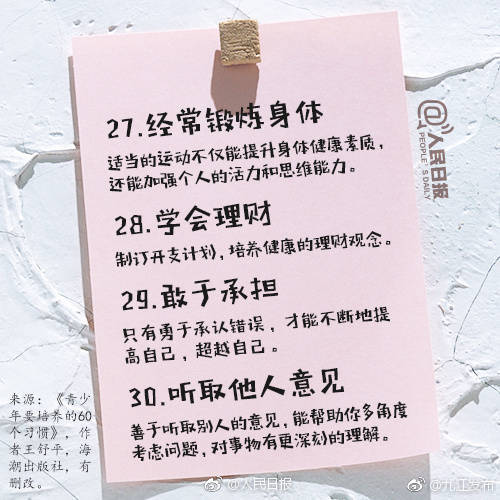 27.经常锻炼身体
适当的运动不仅能提升身体健康素质,
还能加强个人的活力和思维能力。
28.学会理财
制订开支计划,培养健康的理财观念。
29.敢于承担
只有勇于承认错误，才能不断地提
高自己，超越自己。
30.听取他人意见
善于听取别人的意见,能帮助你多角度
考虑问题,对事物有更深刻的理解。
@人民日报
PEOPLE'S DAILY
来源：《青少
年要培养的60
个习惯》，作
者王舒平，海
潮出版社，有
删改。
@人民日报
@九江发布